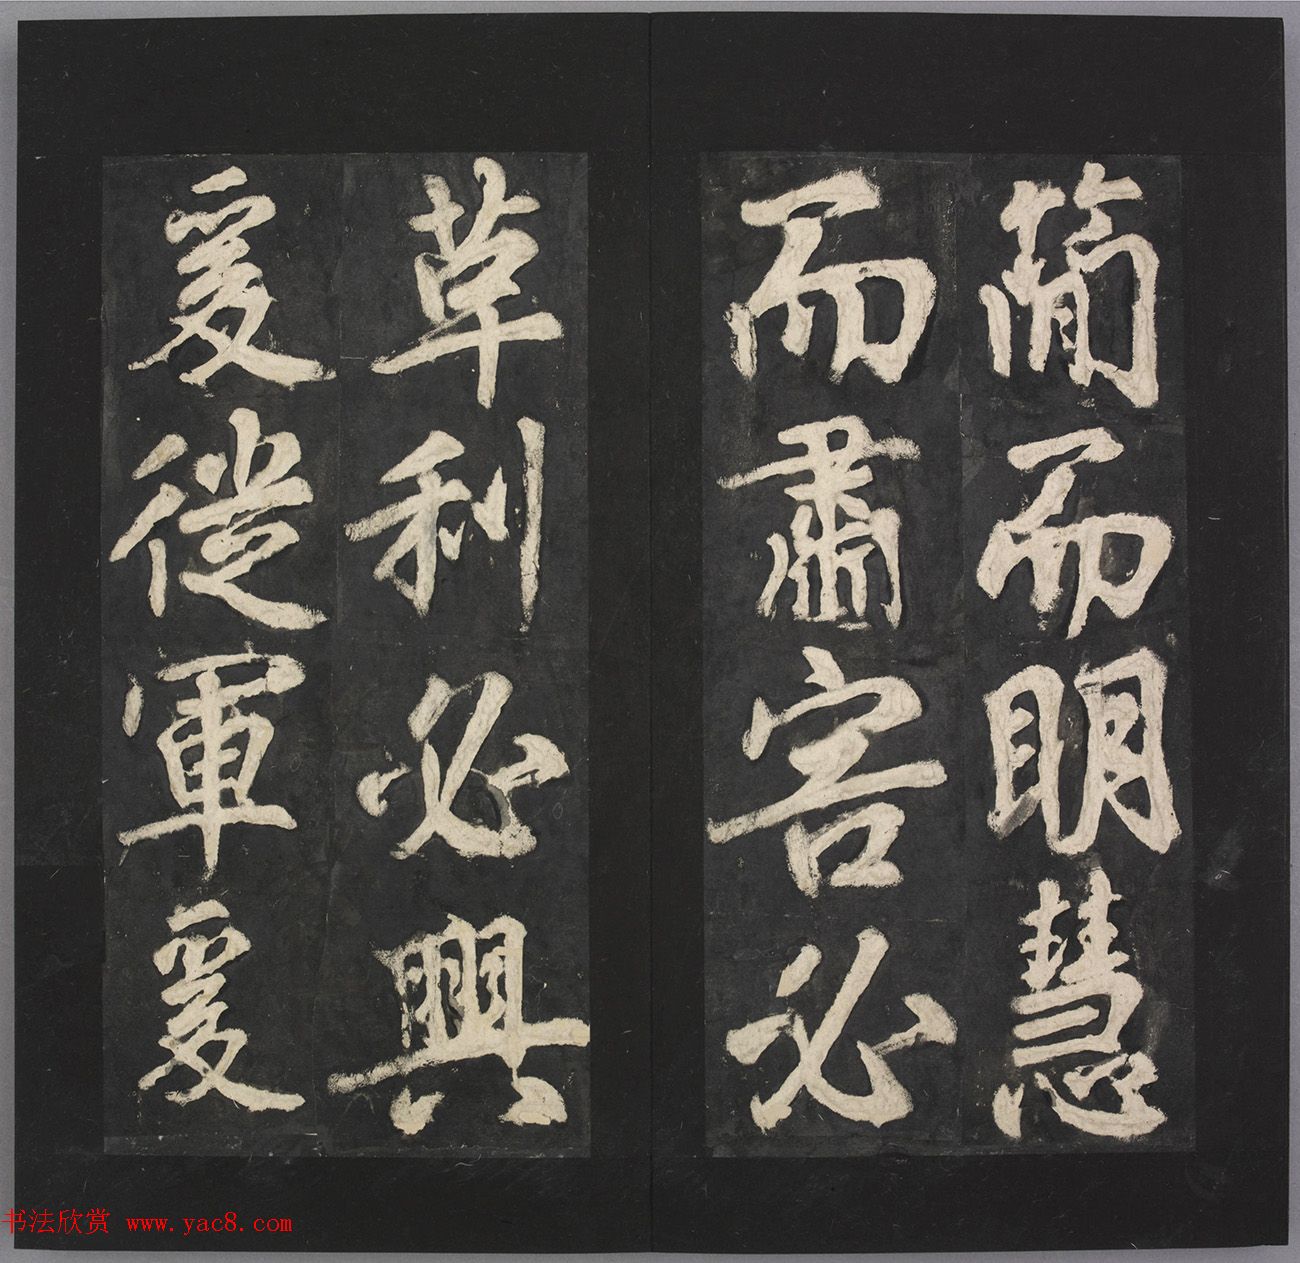 簡而明慧
而肅害必
革利必興
爰從軍爰
书法欣赏 www.yac8.com